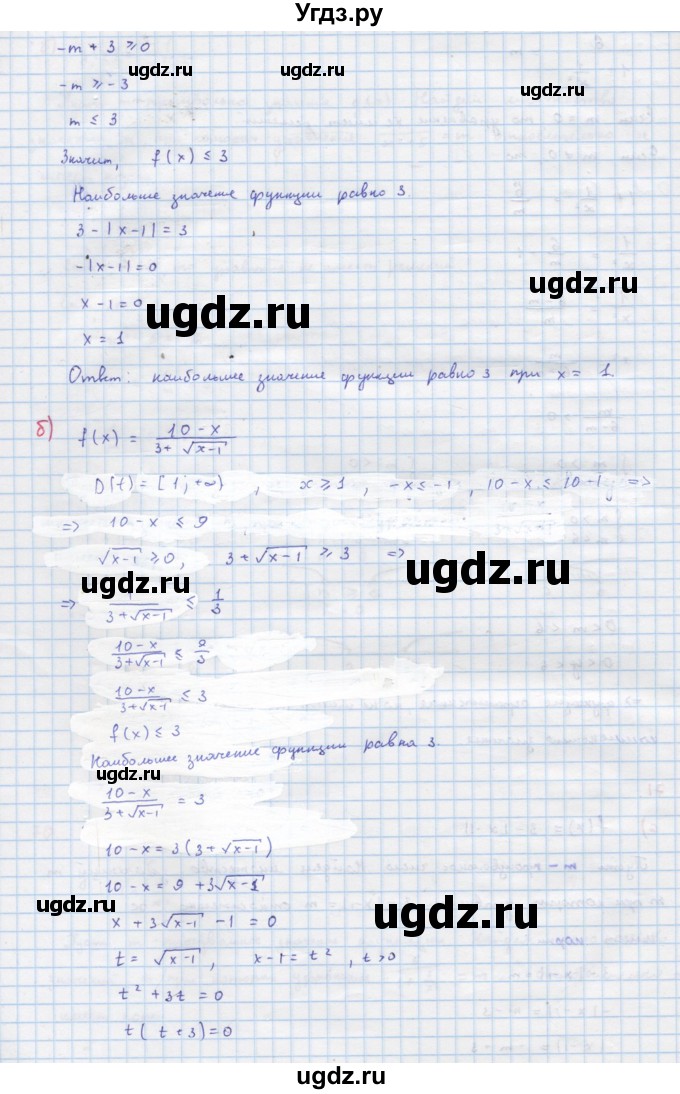 Угдз.ру
-m + 3 ≥ 0
ugdz.ru ugdz.ru
-m ≥ -3
ugdz.ru
m ≤ 3
Значит, f(x) ≤ 3
Наибольшее значение функции равно 3
3 - |x-1| = 3
-|x-1| = 0
ugdz.ru
x - 1 = 0
ugdz.ru
x = 1
Ответ: наибольшее значение функции равно 3 при x = 1
б) f(x) = \frac{10-x}{3+√(x-1)}
ugdz.ru
D(f) = [1; +∞), x ≥ 1, -x ≤ -1, 10-x ≤ 10-1 =>
=> 10-x ≤ 9
√(x-1) ≥ 0, 3+√(x-1) ≥ 3 =>
ugdz.ru ugdz.ru
=> \frac{1}{3+√(x-1)} ≤ \frac{1}{3}
\frac{10-x}{3+√(x-1)} ≤ \frac{9}{3}
\frac{10-x}{3+√(x-1)} ≤ 3
f(x) ≤ 3
Наибольшее значение функции равна 3.
ugdz.ru
\frac{10-x}{3+√(x-1)} = 3
10-x = 3(3+√(x-1))
10-x = 9 + 3√(x-1)
ugdz.ru ugdz.ru
x + 3√(x-1) - 1 = 0
t = √(x-1), x-1 = t², t>0
t² + 3t = 0
t(t+3) = 0
ugdz.ru